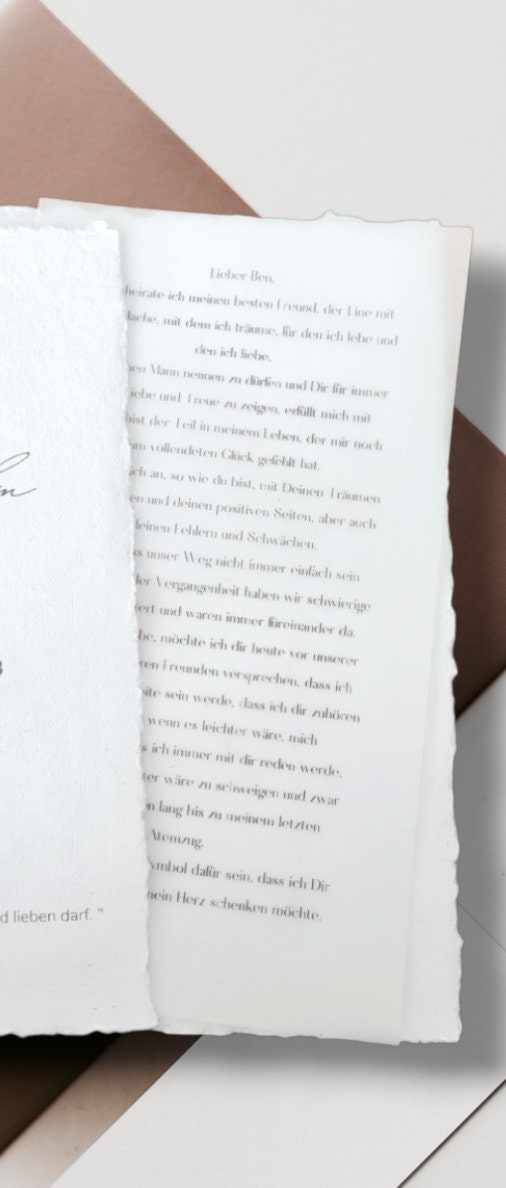 Lieber Ben,
heirate ich meinen besten Freund, der Eine mit
lache, mit dem ich träume, für den ich lebe und
den ich liebe.
nen Mann nennen zu dürfen und Dir für immer
Liebe und Treue zu zeigen, erfüllt mich mit
bist der Teil in meinem Leben, der mir noch
um vollendeten Glück gefehlt hat.
ich an, so wie du bist, mit Deinen Träumen
en und deinen positiven Seiten, aber auch
deinen Fehlern und Schwächen.
ss unser Weg nicht immer einfach sein
der Vergangenheit haben wir schwierige
ert und waren immer füreinander da.
be, möchte ich dir heute vor unserer
ren Freunden versprechen, dass ich
eite sein werde, dass ich dir zuhören
wenn es leichter wäre, mich
s ich immer mit dir reden werde,
ter wäre zu schweigen und zwar
n lang bis zu meinem letzten
Atemzug.
ymbol dafür sein, dass ich Dir
mein Herz schenken möchte.
d lieben darf. "